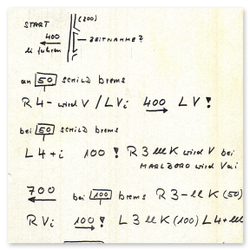 START (200)
400 — ZEITNAHME?
li fahren
an 50 SCHILD brems
R4- wird V / LVi 400 LV!
bei 50 SCHILD brems
L4+i 100 ! R3 llK wird V bei
MARLBORO wird Vai
700 bei 100 brems R3-llK (50)
RVi 100! L3 llK (100) L4+lll